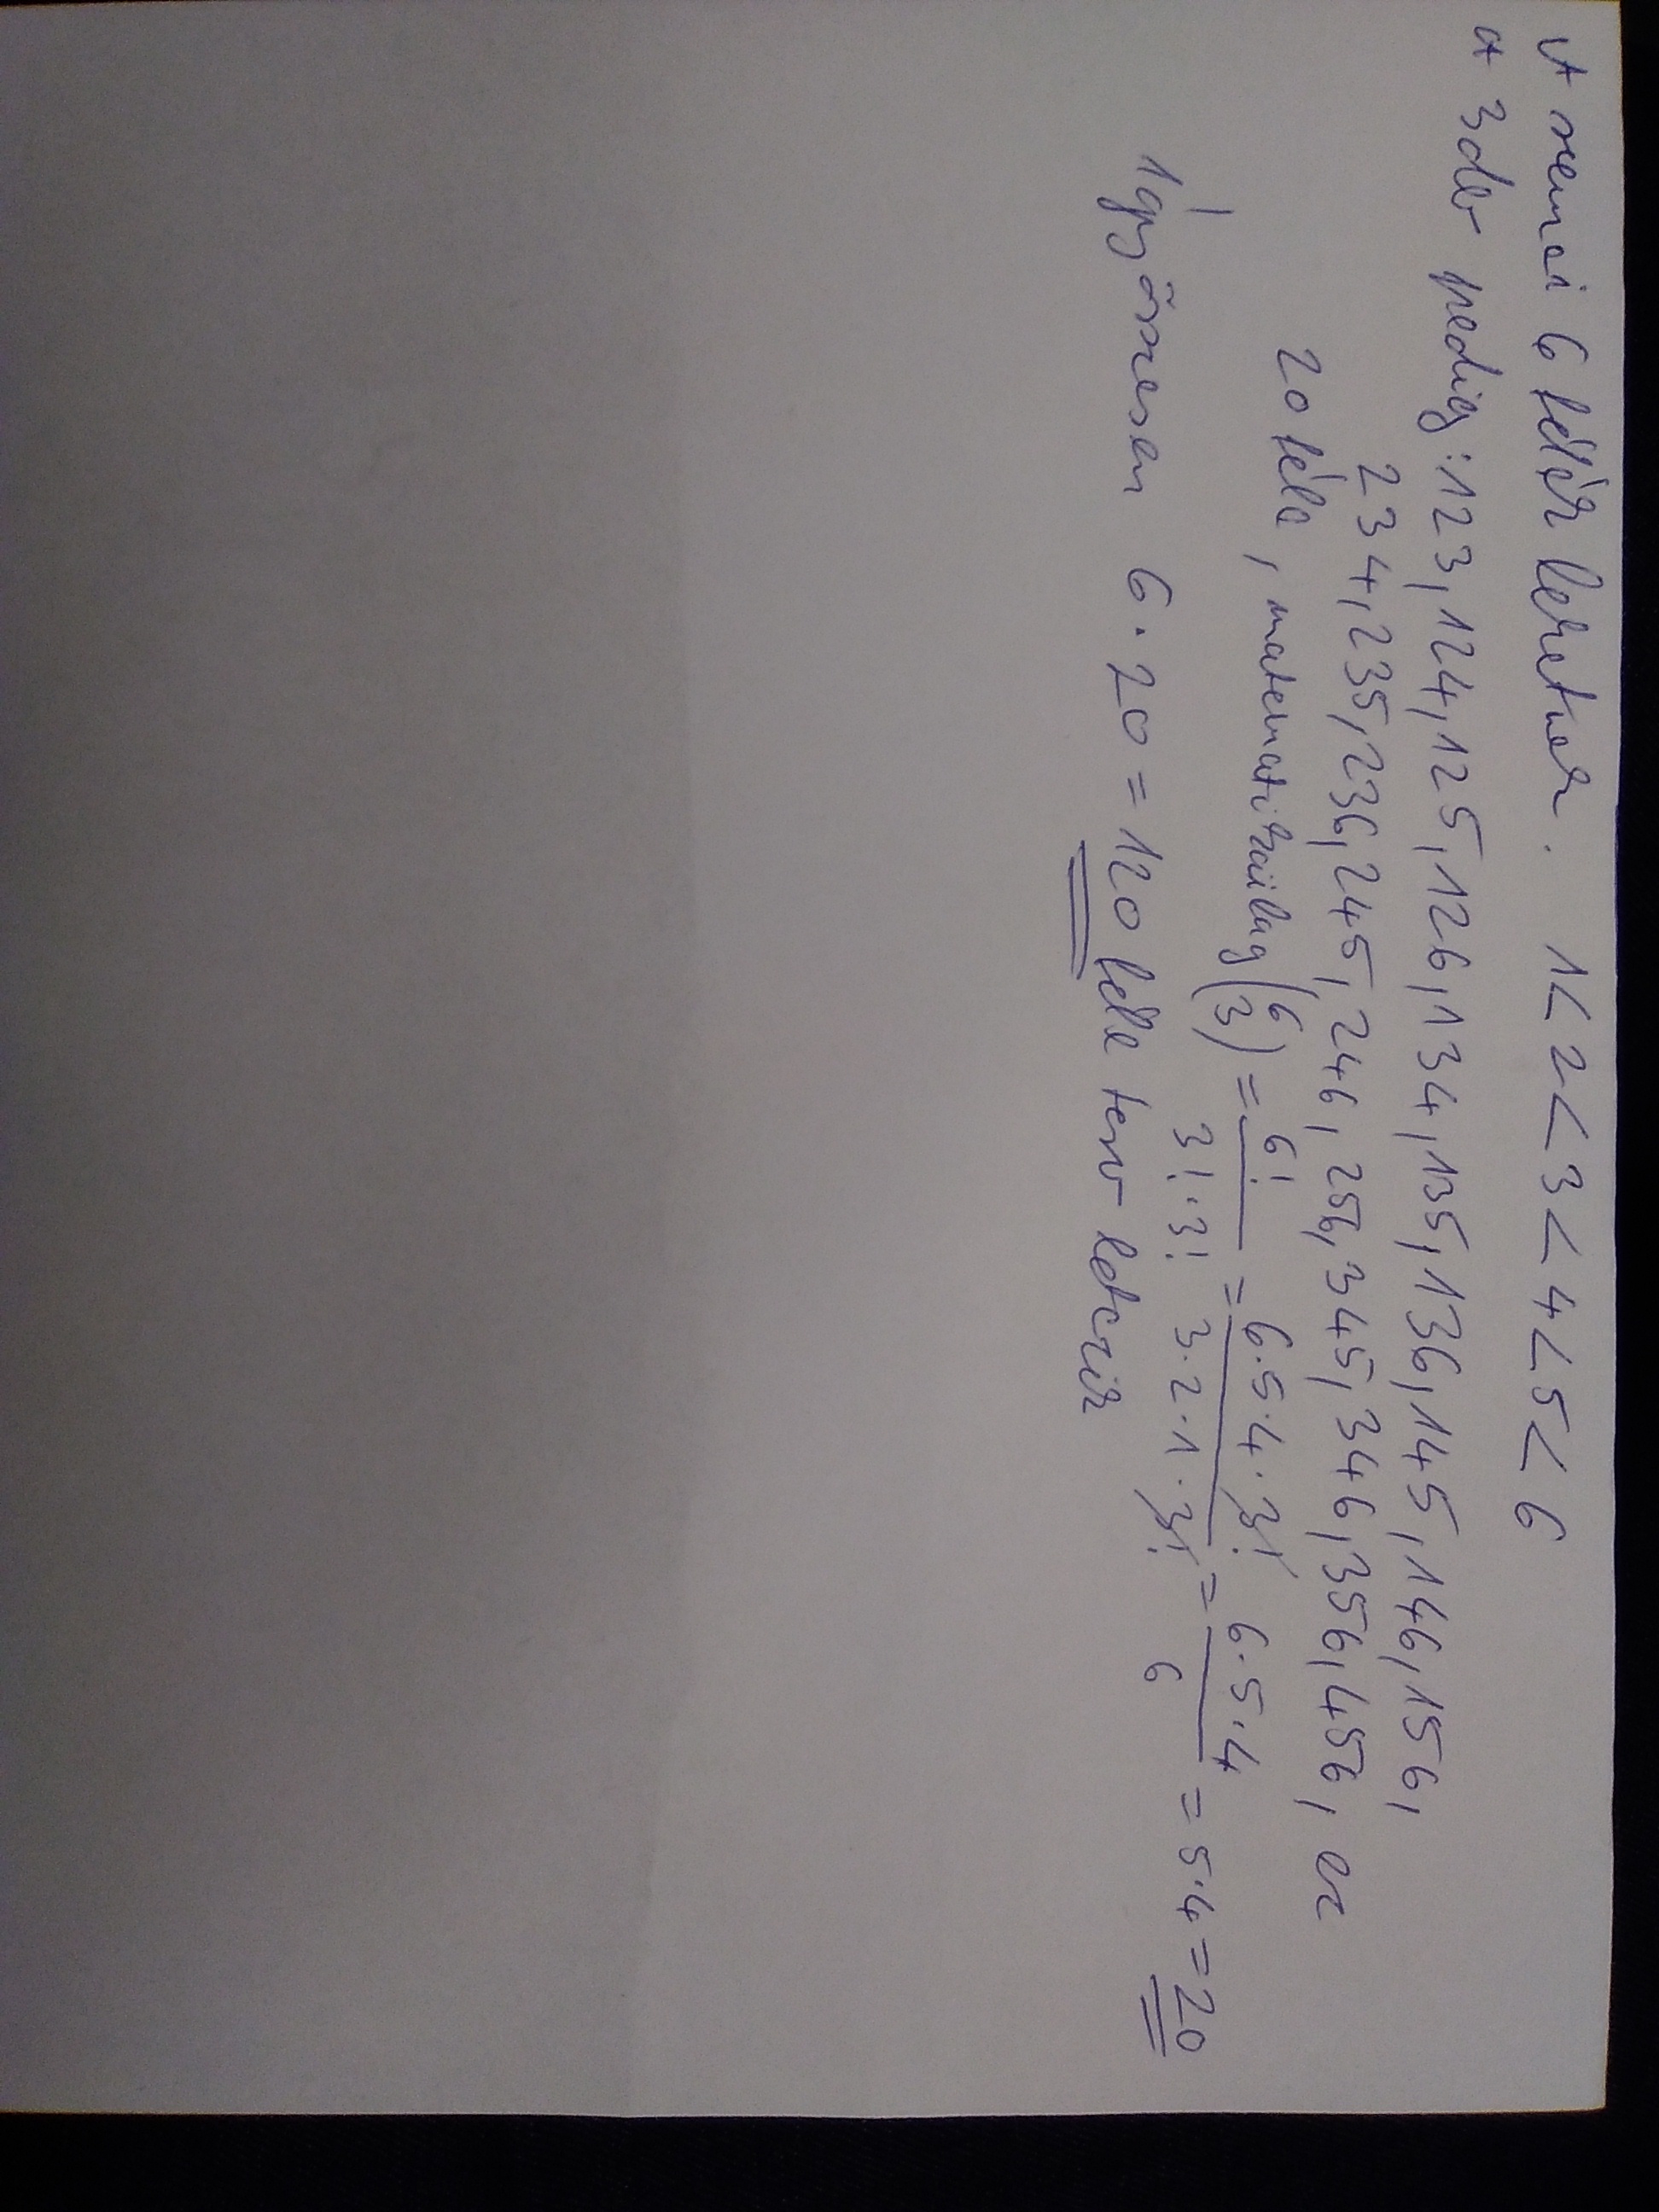 A nemei 6 félék lehetnek. 1<2<3<4<5<6
a 3db pedig: 123,124,125,126,134,135,136,145,146,156,
234,235,236,245,246,256,345,346,356,456, ez
20 féle, matematikailag (6 3) = 6!/3!·3! = 6·5·4·3!/3·2·1·3! = 6·5·4/6 = 5·4=20
Így összesen 6·20=120 féle terv létezik